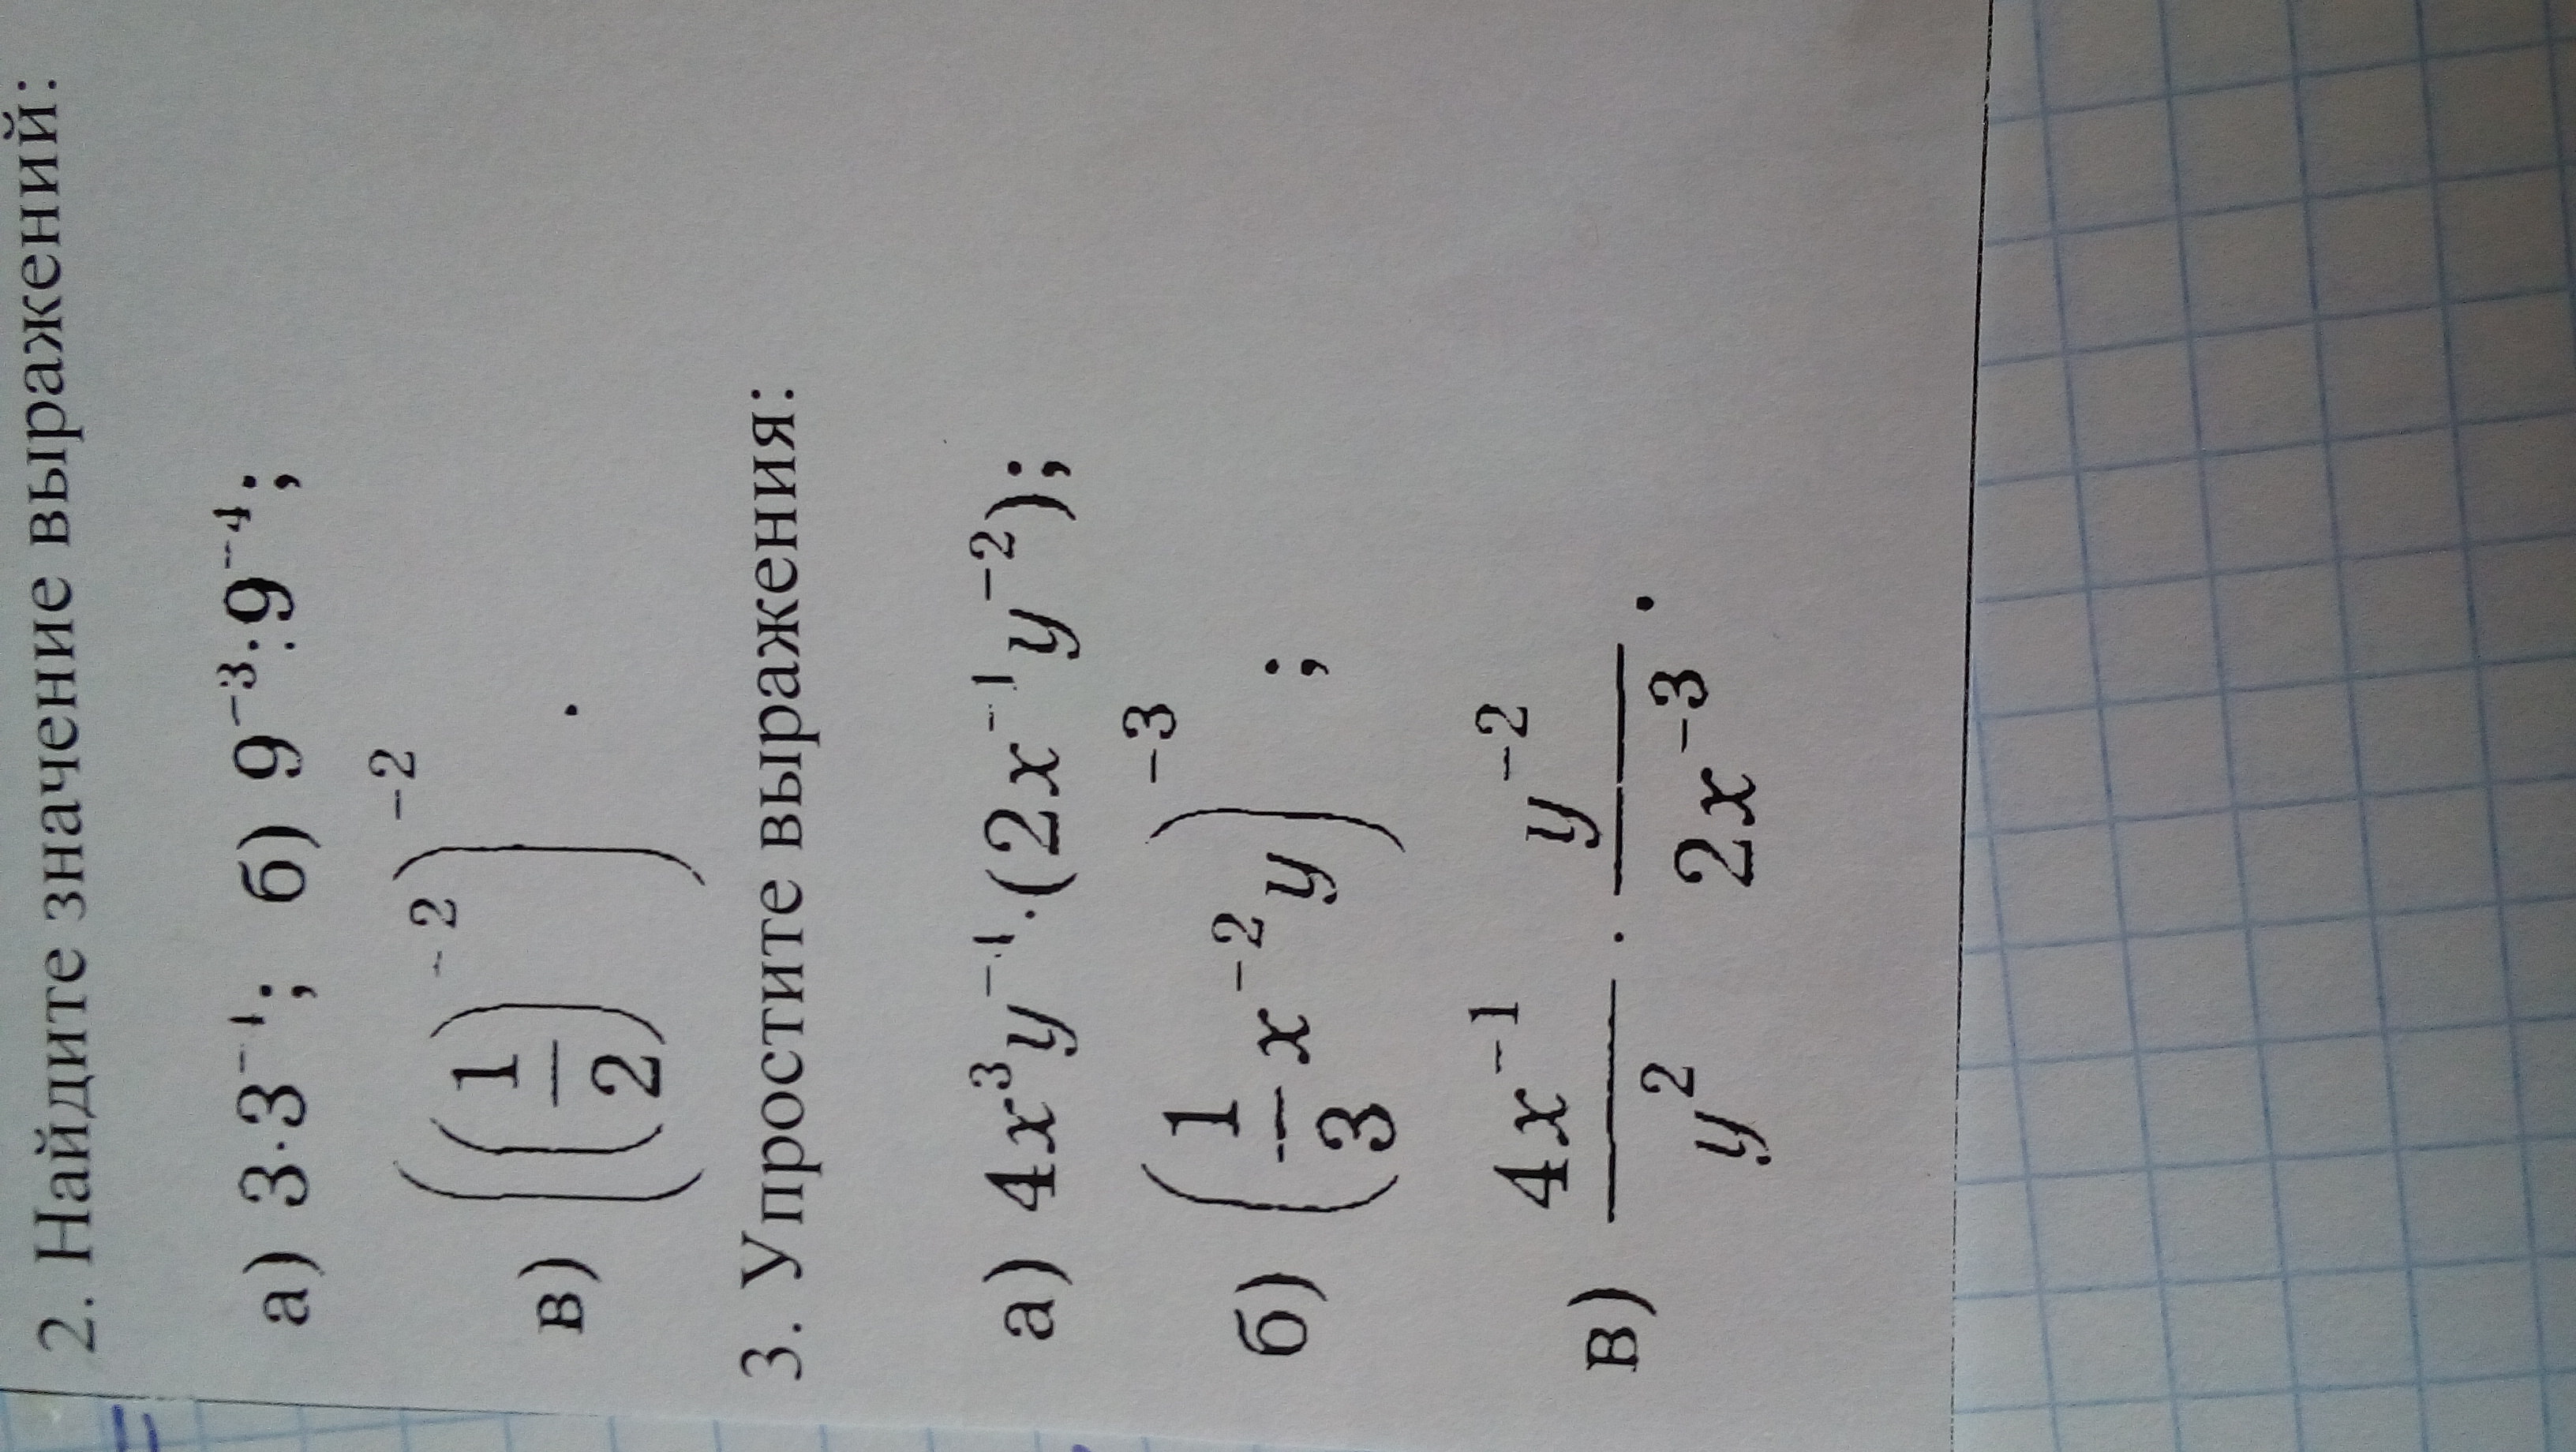 2. Найдите значение выражений:
а) 3·3⁻¹; б) 9⁻³:9⁻⁴;
в) ((1/2)⁻²)⁻².
3. Упростите выражения:
а) 4x³y⁻¹·(2x⁻¹y⁻²);
б) (1/3 x⁻²y)⁻³;
в) 4x⁻¹/y² · y⁻²/2x⁻³.